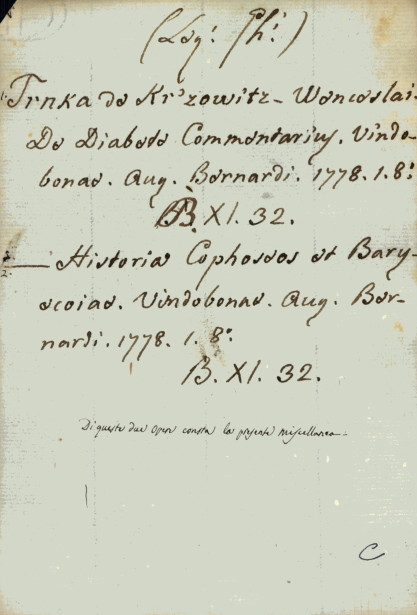 (Leg: Ph:)
1. Trnka de Kr'zowitz_ Wenceslai.
De Diabete Commentarius. Vindo-
bonae. Aug. Bernardi. 1778. 1. 8:
B. XI. 32.
2. ___ Historia Cophoseos et Bary-
ecoiae. Vindobonae. Aug. Ber-
nardi. 1778. 1. 8:
B. XI. 32.
Di queste due opere consta la presente miscellanea_
C